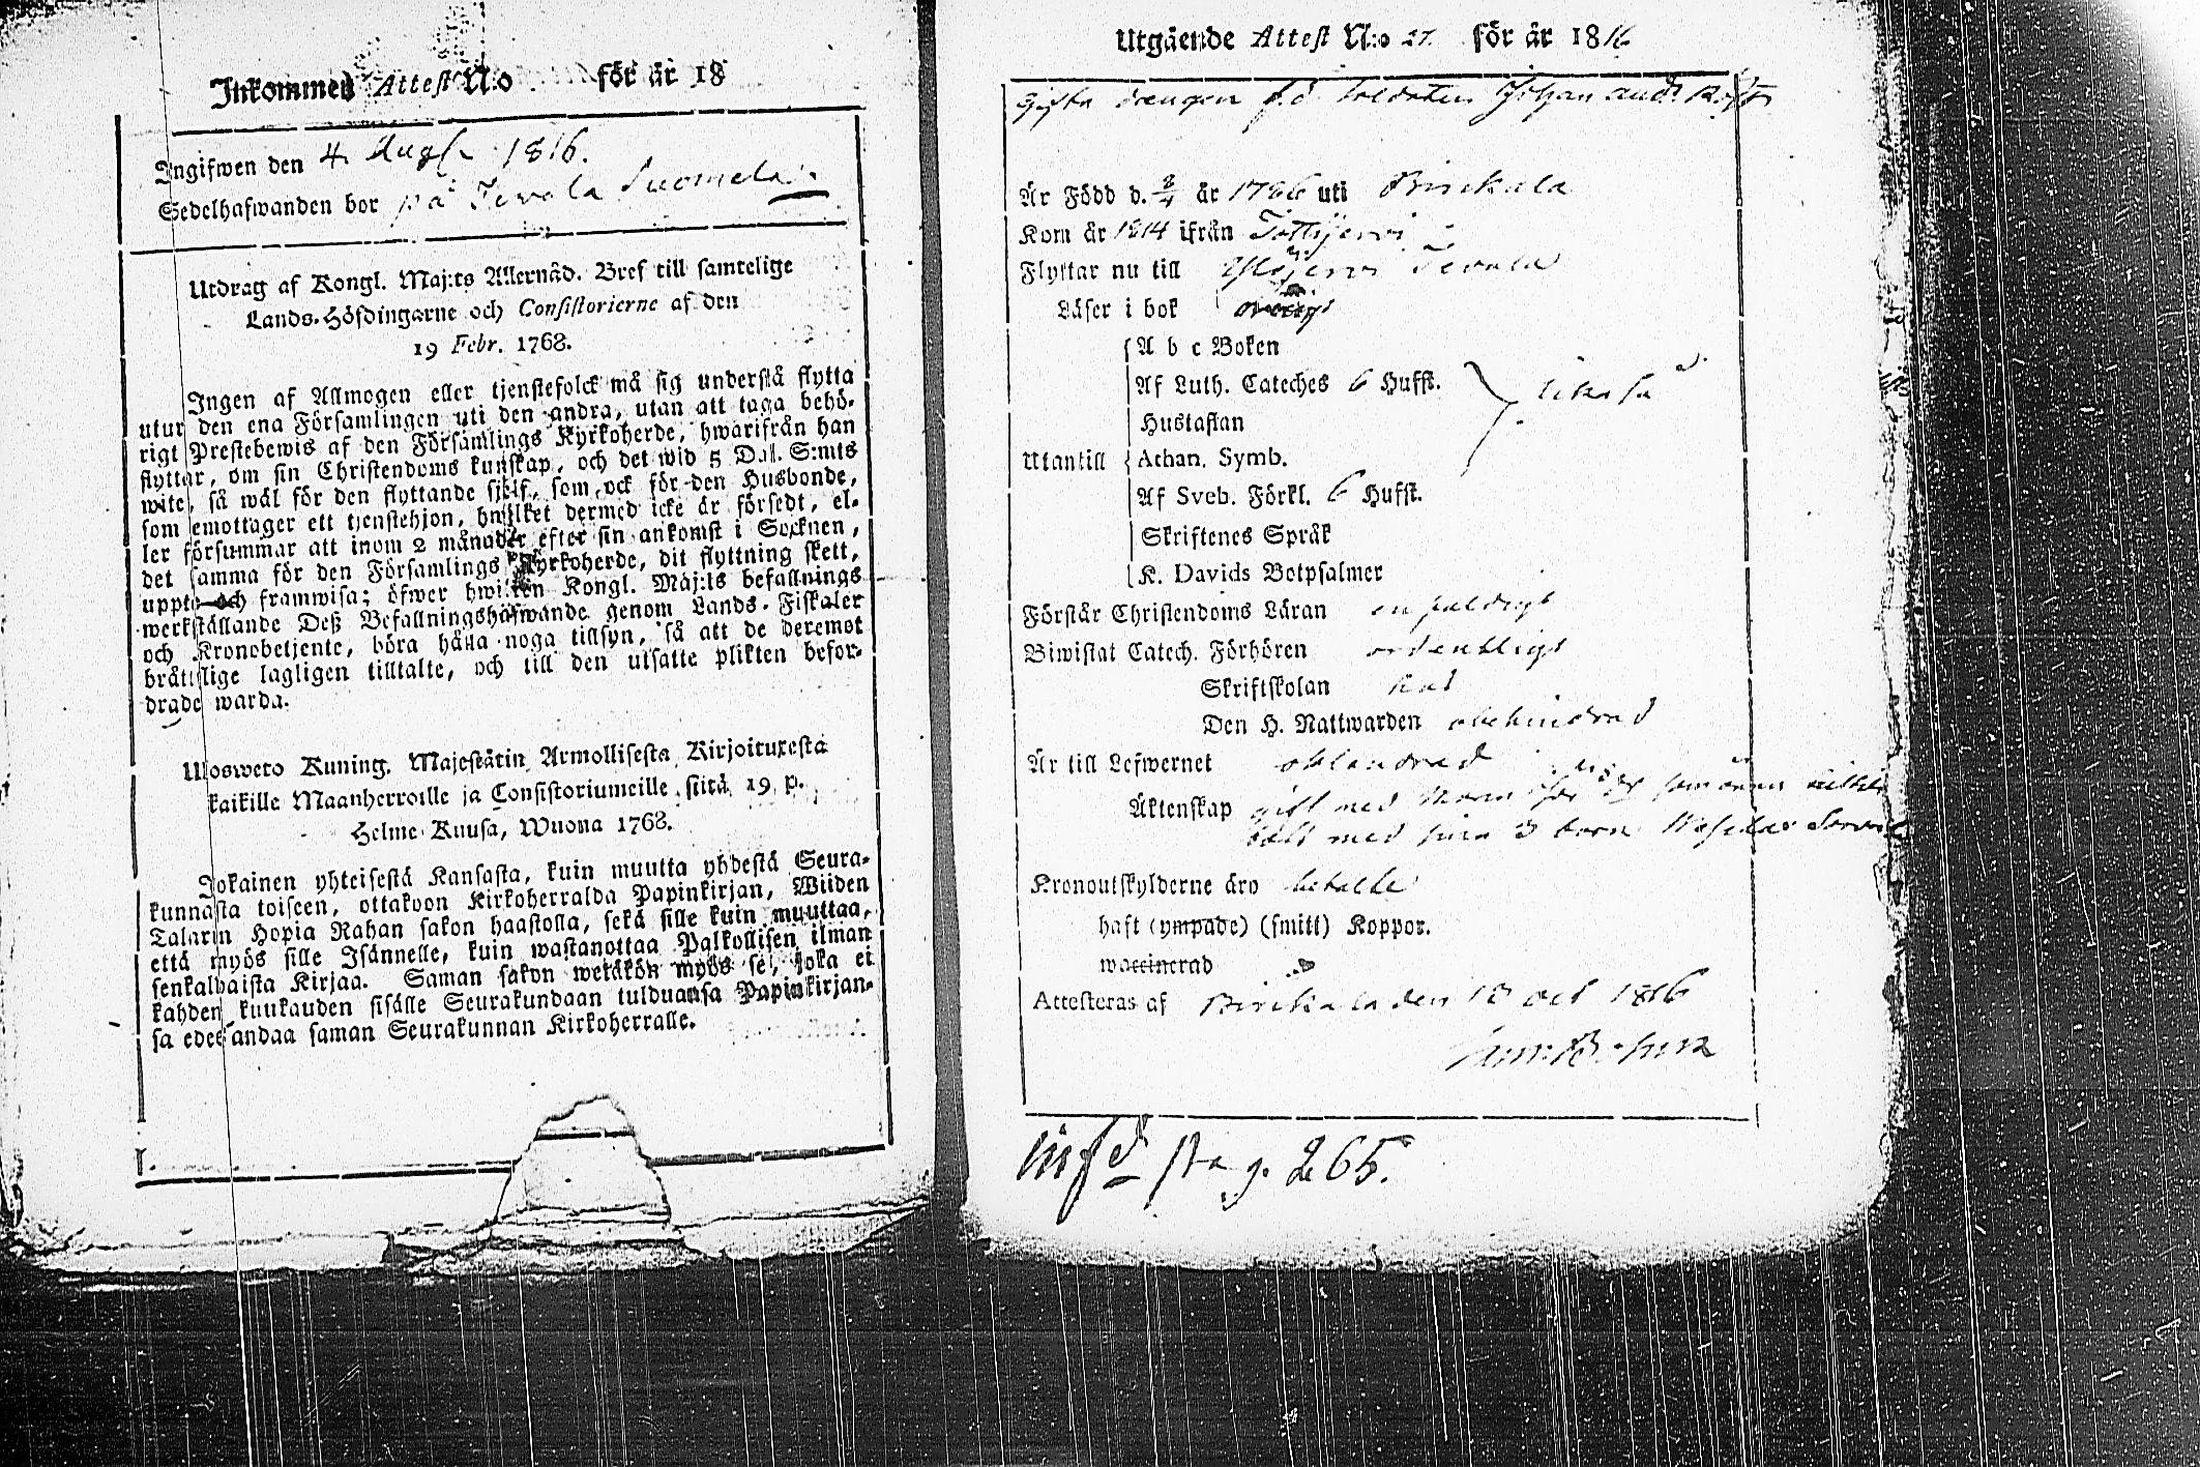 Inkommen Attest N:o för år 18
Ingifwen den 4. Aug 1816.
Sedelhafwanden bor på Tevala Suomela.
Utdrag af Kongl. Maj:ts Allernåd. Bref till samtelige
Lands-Höfdingarne och Consistorierne af den
19 Febr. 1768.
Ingen af Allmogen eller tjenstefolck må sig understå flytta
utur den ena Församlingen uti den andra, utan att taga behö-
rigt Prestebewis af den Församlings Kyrkoherde, hwarifrån han
flyttar, om sin Christendoms kunskap, och det wid 5 Dal. S:mts
wite, så wäl för den flyttande sjelf, som ock för den Husbonde,
som emottager ett tjenstehjon, hwilket dermed icke är försedt, el-
ler försummar att inom 2 månader efter sin ankomst i Socknen,
det samma för den Församlings Kyrkoherde, dit flyttning skett,
uppte och framwisa; öfwer hwilken Kongl. Maj:ts befallnings
werkställande Deß Befallningshafwande genom Lands-Fiskaler
och Kronobetjente, böra hålla noga tillsyn, så att de deremot
bråttslige lagligen tilltalte, och till den utsatte plikten befor-
drade warda.
Ulosweto Kuning. Majestätin Armollisesta Kirjoituxesta
kaikille Maanherroille ja Consistoriumeille siitä 19 p.
Helme-Kuusa, Wuona 1768.
Jokainen yhteisestä Kansasta, kuin muutta yhdestä Seura-
kunnasta toiseen, ottakoon Kirkoherralda Papinkirjan, Wiiden
Talarin Hopia Rahan sakon haastolla, sekä sille kuin muuttaa,
että myös sille Isännelle, kuin wastanottaa Palkollisen ilman
senkaltaista Kirjaa. Saman sakon wetäkön myös se, joka ei
kahden kuukauden sisälle Seurakundaan tulduansa Papinkirjan-
sa edesandaa saman Seurakunnan Kirkoherralle.
Utgående Attest N:o 27. för år 1816
Gifta drengen f.d. Soldaten Johan
Är Född d. 3/4 år 1786 uti Birckala
Kom år 1814 ifrån Tottijervi
Flyttar nu till Ylöjervi Tevala
Läser i bok
A b c Boken
Af Luth. Cateches 6 Hufst. likaså
Hustaflan
Utantill Athan. Symb.
Af Sveb. Förkl. 6 Hufst.
Skriftenes Språk
K. Davids Botpsalmer
Förstår Christendoms Läran enfaldigt
Biwistat Catech. Förhören ordentligt
Skriftskolan
Den H. Nattwarden obehindrad
Är till Lefwernet oklandrad
Äktenskap gift med
med sina 3 barn
Kronoutskylderne äro betalte
haft (ympade) (smitt) Koppor.
waccinerad
Attesteras af Birckala den 18 Oct 1816
pag. 265.